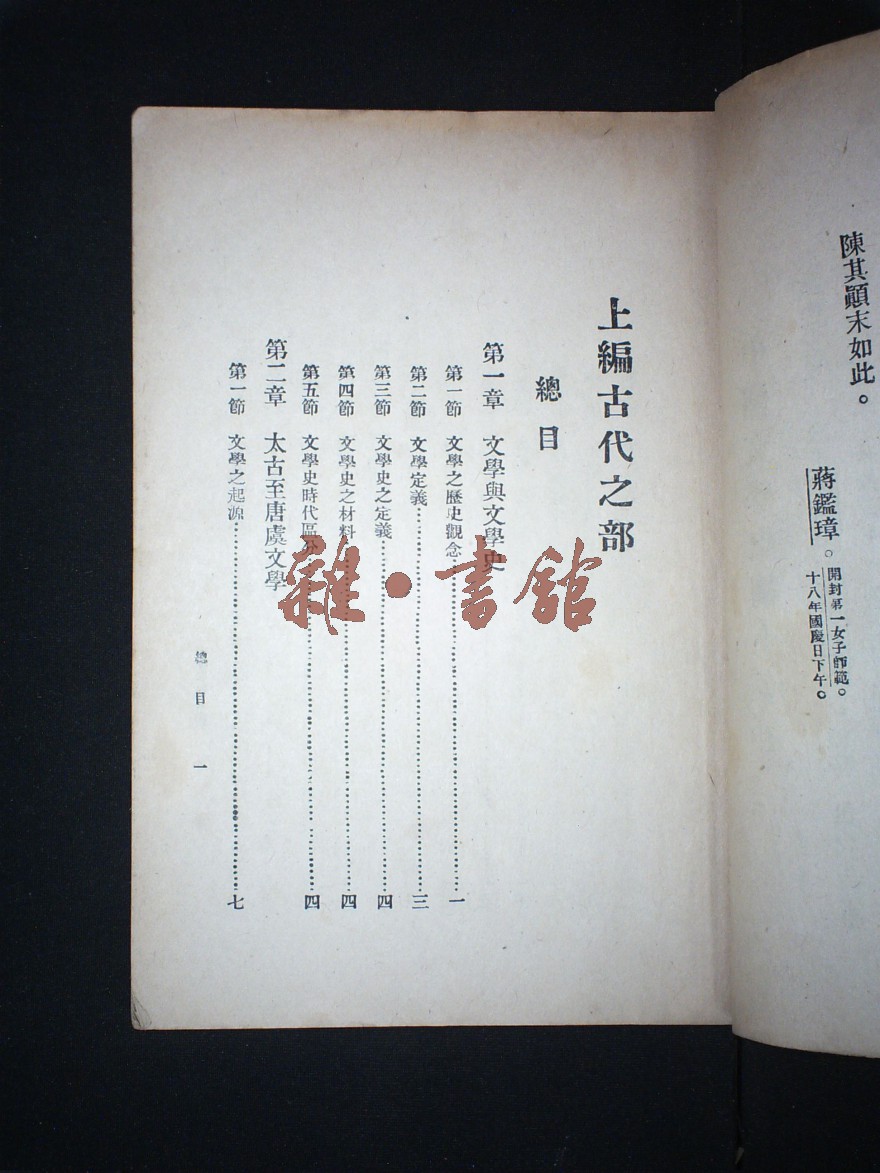 陳其顚末如此。
蔣鑑璋。
開封第一女子師範。
十八年國慶日下午。
上編古代之部
總目
第一章 文學與文學史
第一節 文學之歷史觀念……一
第二節 文學定義……三
第三節 文學史之定義……四
第四節 文學史之材料……四
第五節 文學史時代區分……四
第二章 太古至唐虞文學
第一節 文學之起源……七
總目 一
雜·書館